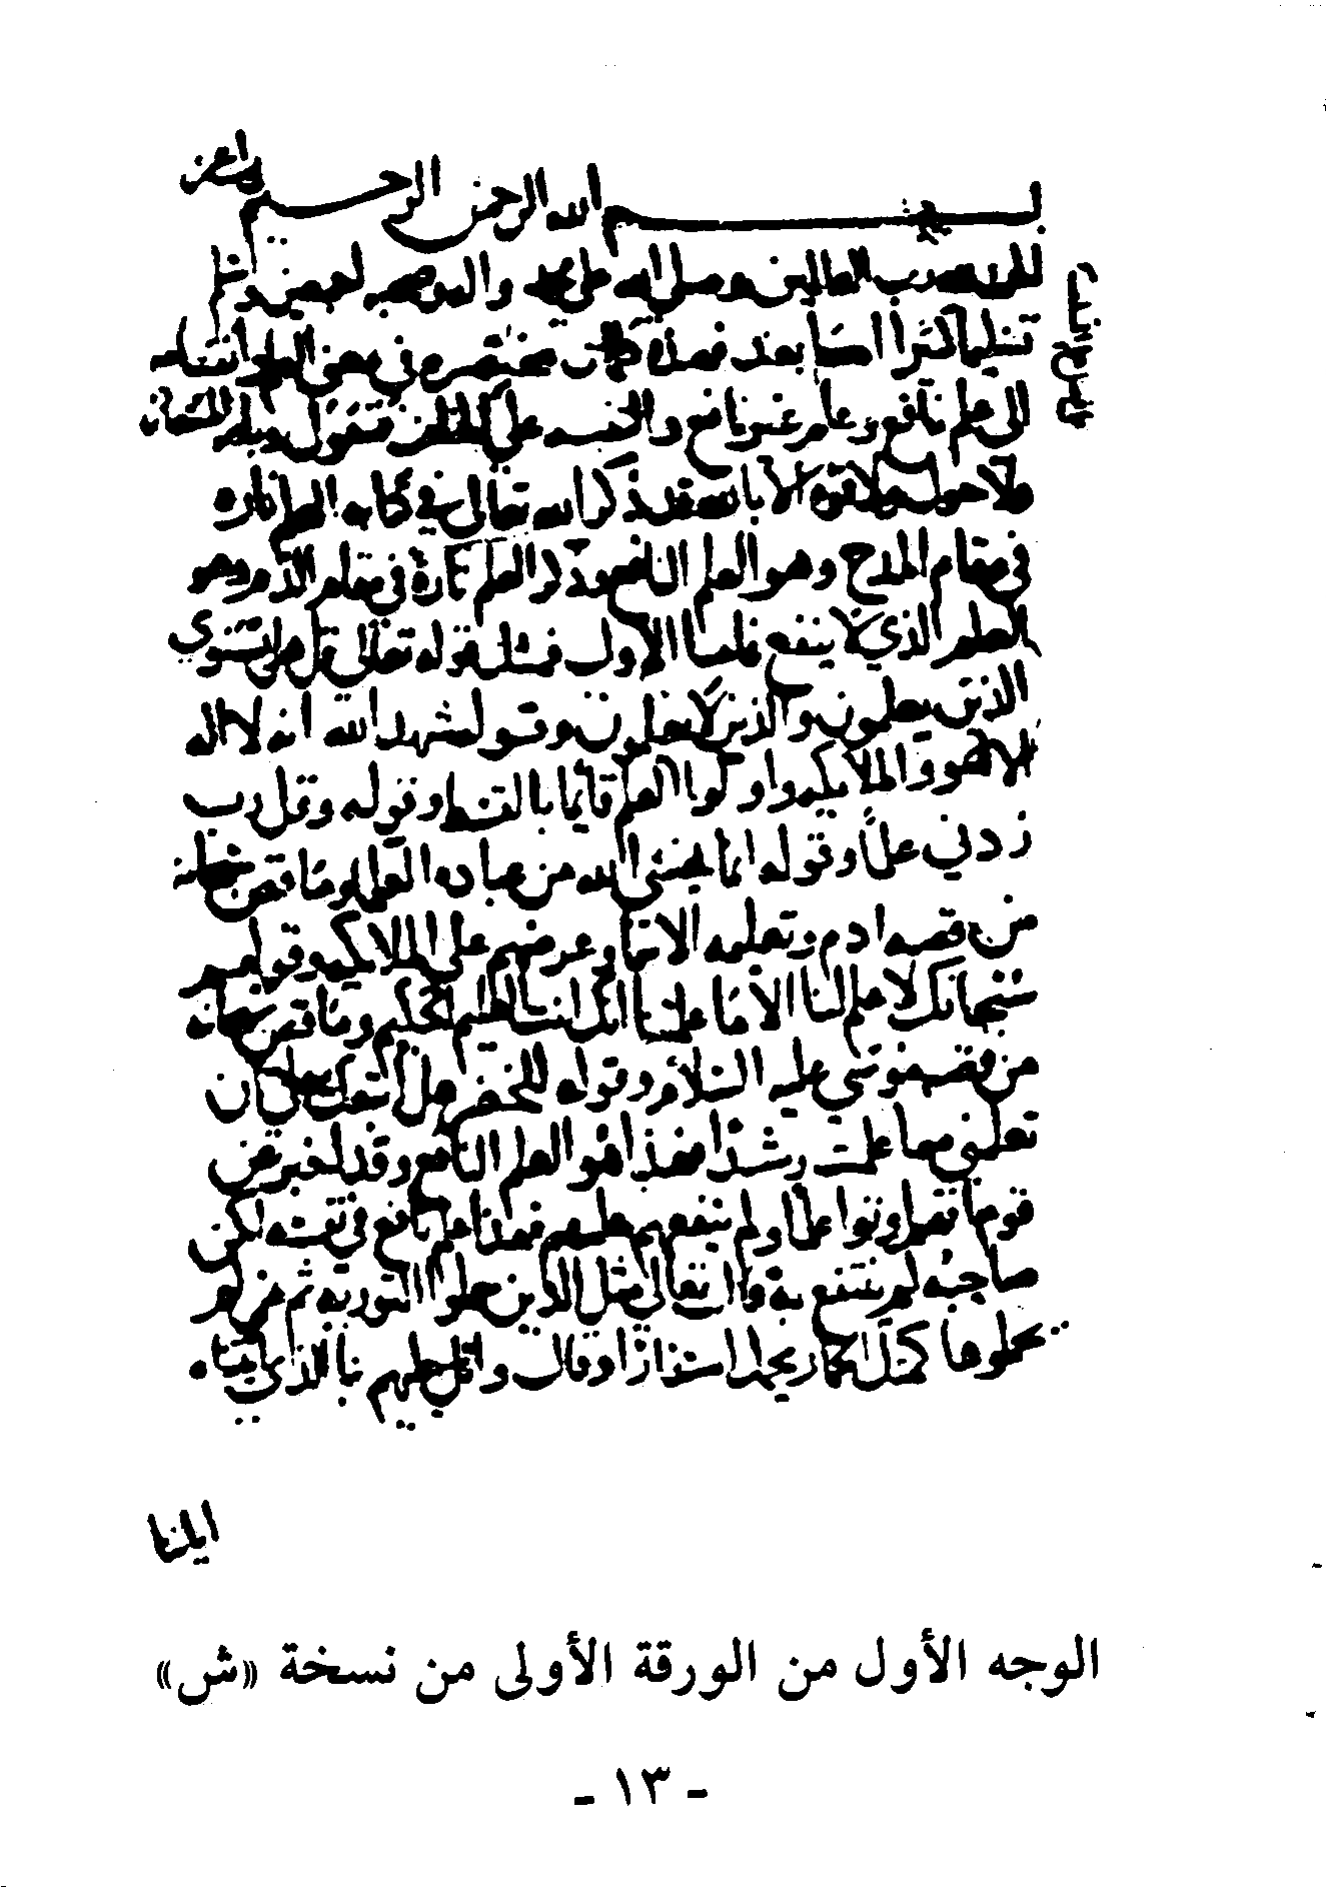 بسم الله الرحمن الرحيم واعن
الحمد لله رب العالمين وصلى الله على محمد واله وصحبه اجمعين وسلم
تسليما كثيرا اما بعد فهذه كلمات مختصره في معنى العلم وانقسامه
الى علم نافع وعلم غير نافع والتنبيه على فنقول وبالله المستعان
ولا حول ولا قوة الا بالله قد ذكر الله تعالى في كتابه العلم تاره
في مقام المدح وهو العلم النافع وذكر العلم تارة في مقام الذم وهو
العلم الذي لا ينفع فاما الاول فمثل قوله تعالى قل هل يستوي
الذين يعلمون والذين لا يعلمون وقوله شهد الله انه لا اله
الا هو والملايكه واولوا العلم قائما بالقسط وقوله وقل رب
زدني علما وقوله انما يخشى الله من عباده العلما وما قص سبحانه
من قصه ادم وتعليمه الاسما وعرضهم على الملايكه وقولهم
سبحانك لا علم لنا الا ما علمتنا انك انت العليم الحكيم وما قص سبحانه
من قصه موسى عليه السلام وقوله للخضر هل اتبعك على ان
تعلمني مما علمت رشدا فهذا هو العلم النافع وقد اخبر عن
قوم انهم اوتوا علما ولم ينفعهم علمهم فهذا علم نافع في نفسه لكن
صاحبه لم ينتفع به قال تعالى مثل الذين حملوا التورية ثم لم
يحملوها كمثل الحمار يحمل اسفارا وقال واتل عليهم نبا الذي اتيناه
اياتنا
الوجه الأول من الورقة الأولى من نسخة «ش»
- ١٣ -